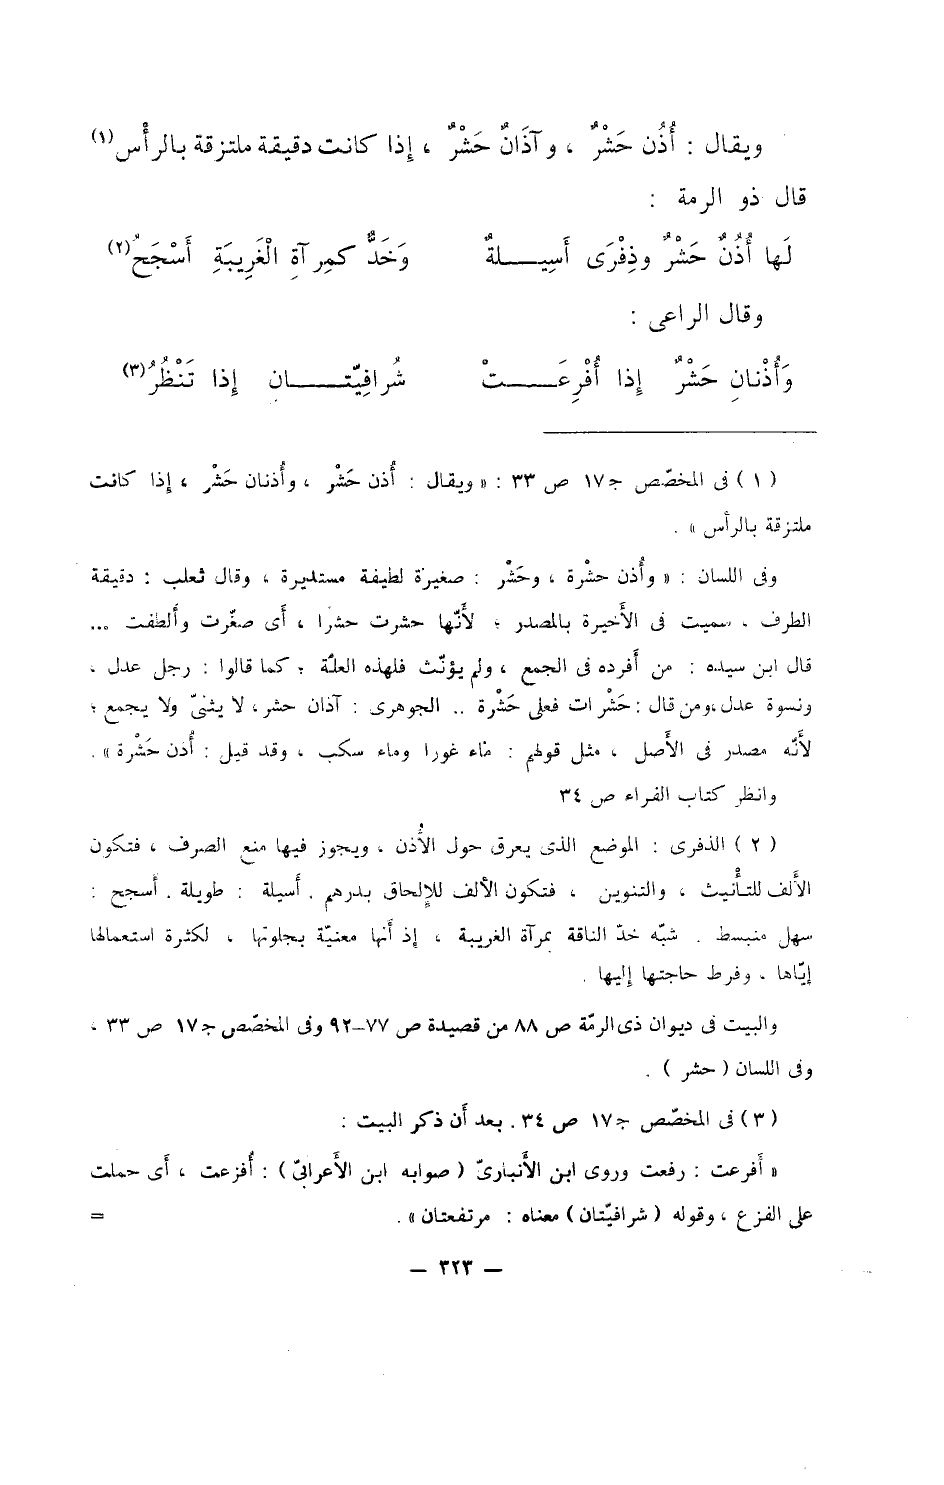 ويقال : أُذُن حَشْرٌ ، وآذَانٌ حَشْرٌ ، إذا كانت دقيقة ملتزقة بالرأْس(١)
قال ذو الرمة :
لَها أُذُنٌ حَشْرٌ وذِفْرَى أَسِيلةٌ وَخَدٌّ كمِرآةِ الْغَرِيبَةِ أَسْجَحُ(٢)
وقال الراعى :
وَأُذْنانِ حَشْرٌ إذا أُفْرِعَتْ شُرافِيّتانِ إذا تَنْظُرُ(٣)
(١) فى المخصّص جـ١٧ ص ٣٣ : « ويقال : أُذن حَشْر ، وأُذنان حَشْر ، إذا كانت
ملتزقة بالرأس » .
وفى اللسان : « وأُذن حشْرة ، وحَشْر : صغيرة لطيفة مستديرة ، وقال ثعلب : دقيقة
الطرف ، سميت فى الأَخيرة بالمصدر ؛ لأَنّها حشرت حشرا ، أَى صغّرت وأَلطفت ...
قال ابن سيده : من أَفرده فى الجمع ، ولم يؤنّث فلهذه العلّة ؛ كما قالوا : رجل عدل ،
ونسوة عدل، ومن قال : حَشْرات فعلى حَشْرة .. الجوهرى : آذان حشر، لا يثنىّ ولا يجمع ؛
لأَنّه مصدر فى الأَصل ، مثل قولهم : ماء غورا وماء سكب ، وقد قيل : أُذن حَشْرة » .
وانظر كتاب الفراء ص ٣٤
(٢) الذفرى : الموضع الذى يعرق حول الأُذن ، ويجوز فيها منع الصرف ، فتكون
الأَلف للتأْنيث ، والتنوين ، فتكون الأَلف للإِلحاق بدرهم . أَسيلة : طويلة . أَسجح :
سهل منبسط . شبّه خدّ الناقة بمرآة الغريبة ، إذ أَنها معنيّة بجلوتها ، لكثرة استعمالها
إيّاها ، وفرط حاجتها إليها .
والبيت فى ديوان ذى الرمّة ص ٨٨ من قصيدة ص ٧٧-٩٢ وفى المخصّص جـ١٧ ص ٣٣ ،
وفى اللسان ( حشر ) .
(٣) فى المخصّص جـ١٧ ص ٣٤ . بعد أَن ذكر البيت :
« أَفرعت : رفعت وروى ابن الأَنبارىّ ( صوابه ابن الأَعرابىّ ) : أُفزعت ، أَى حملت
على الفزع ، وقوله ( شرافيّتان ) معناه : مرتفعتان » . =
— ٣٢٣ —